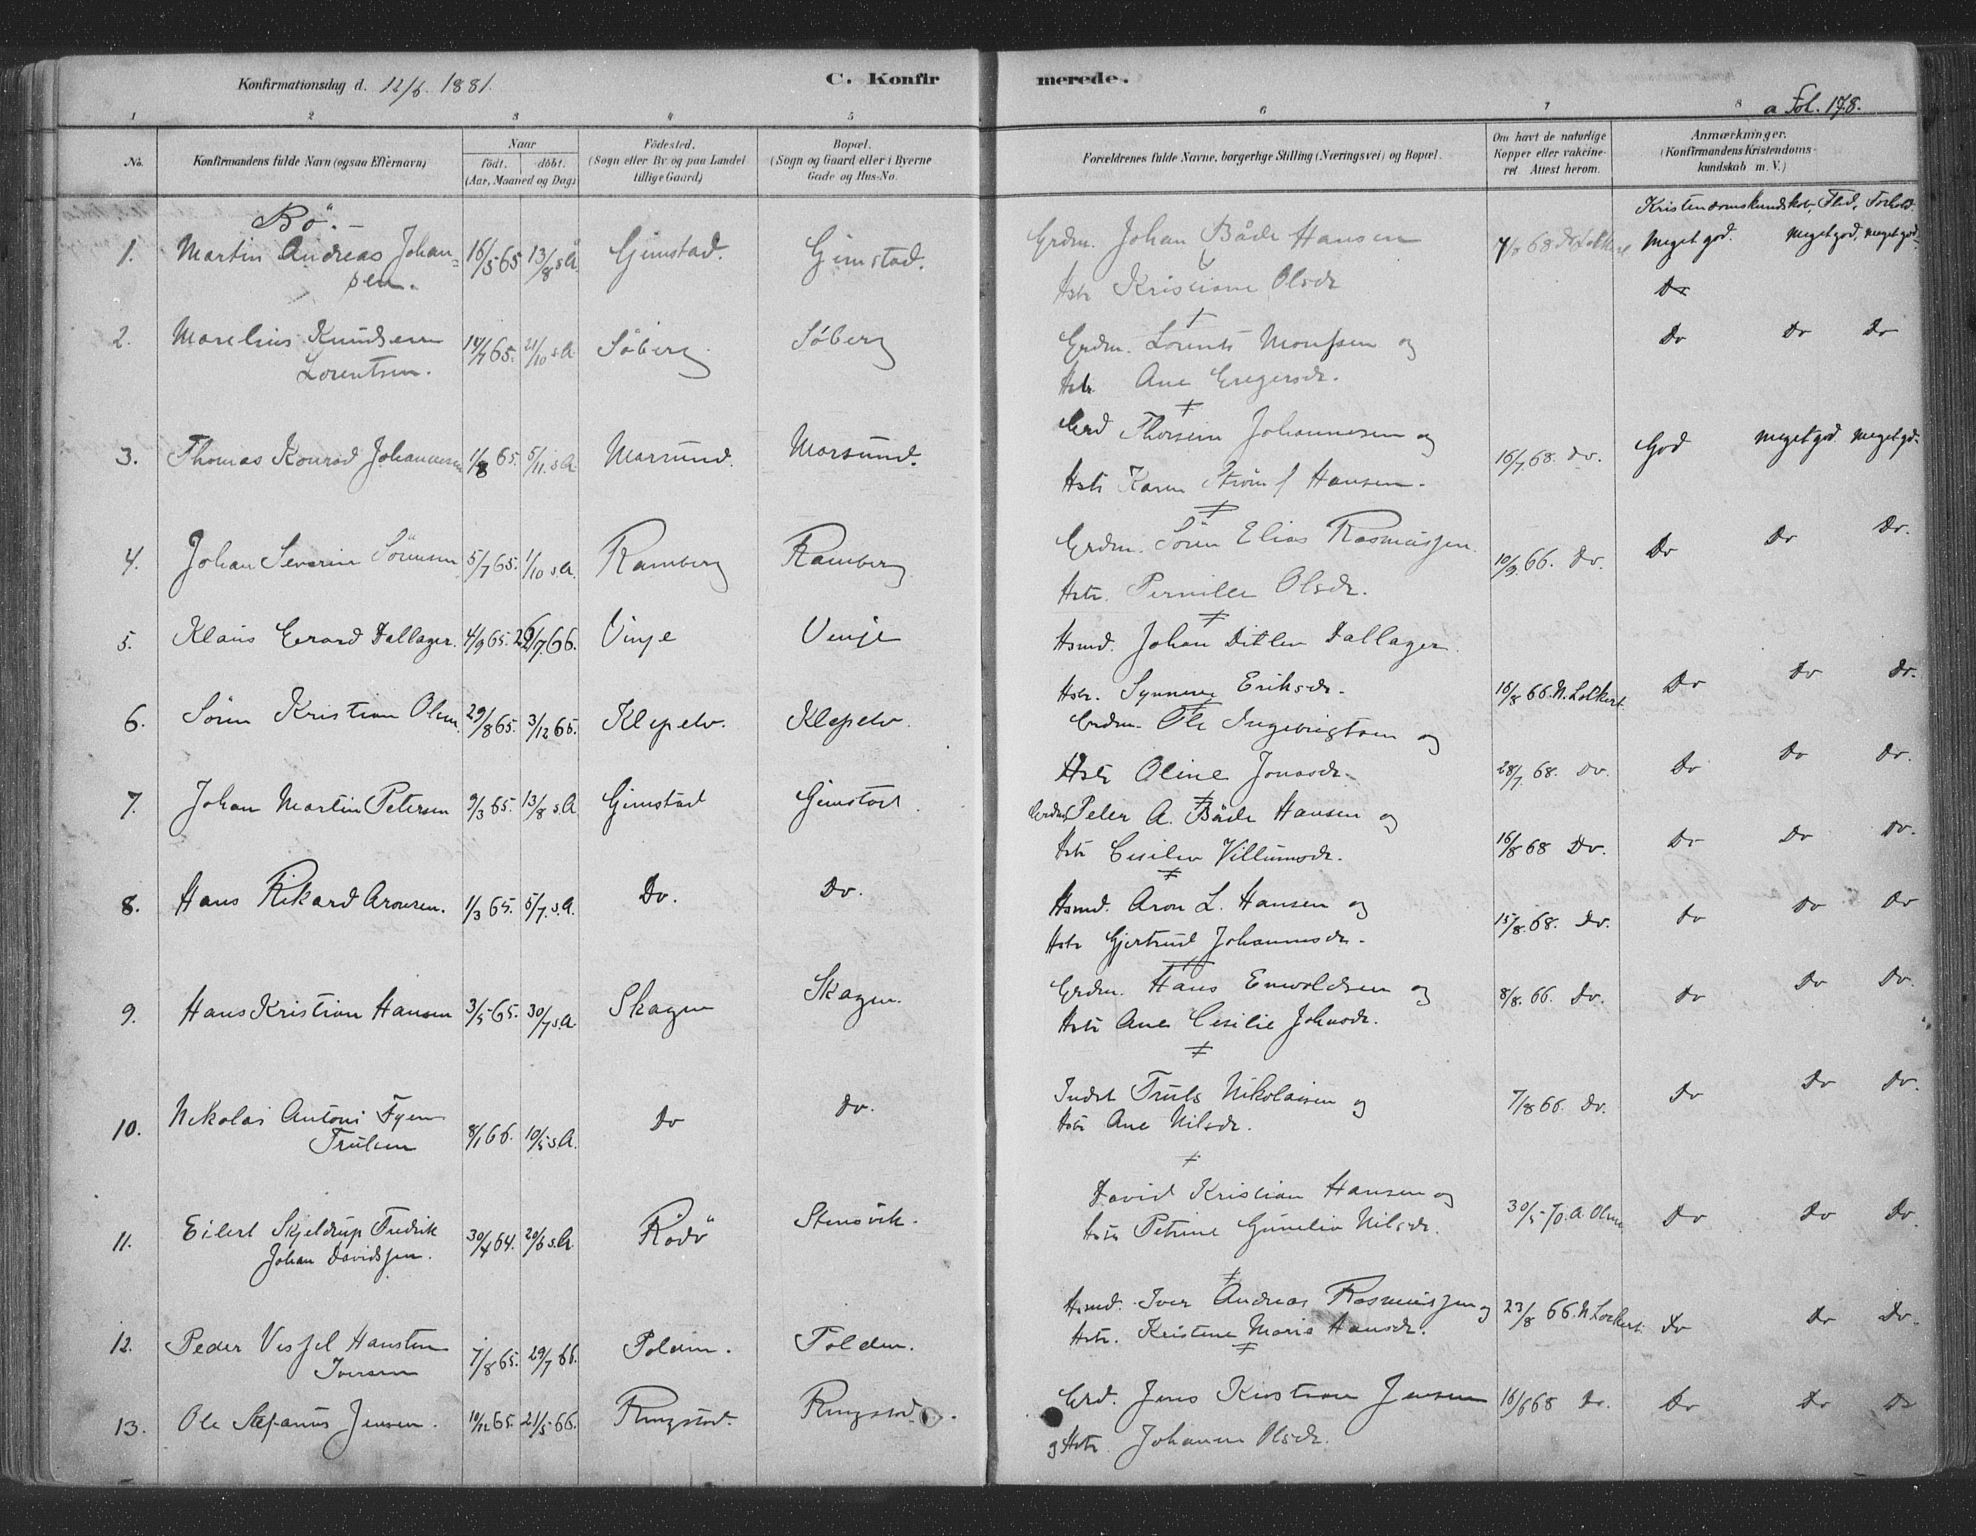 Konfirmationsdag d. 12/6. 1881.
C. Konfir merede.
a Fol. 178.
1 2 3 4 5 6 7 8
No. Konfirmandens fulde Navn (ogsaa Efternavn)
Naar
födt. döbt.
(Aar, Maaned og Dag)
Födested.
(Sogn eller By og paa Landet
tillige Gaard)
Bopæl.
(Sogn og Gaard eller i Byerne
Gade og Hus-No.
Forældrenes fulde Navne, borgerlige Stilling (Næringsvei) og Bopæl.
Om havt de naturlige
Kopper eller vakcine-
ret Attest herom.
Anmærkninger.
(Konfirmandens Kristendoms-
kundskab m. V.)
Kristendomskundskab, Flid, Forhold.
Bö. -
1. Martin Andreas Johan= 16/5 65 13/8 s.A. Gimstad. Gimstad. Grdm. Johan Både Hansen Meget god. Meget god. Meget god.
sen. Hstr Kristiane Olsdr Do
2. Marelius Knudsen 14/7 65. 21/10 s.A. Söberg Söberg Grdm. Lorents Monssen og Do Do Do
Lorentsen. Hstr Ane Gregersdr.
3. Thomas Konrad Johannesen 1/8 65. 5/11. s.A. Marsund. Marsund. Grd Johannesen og
16/7 68. do. God Meget god. Meget gd.
Hstr Karen Hansen.
4. Johan Severin Sörensen 5/7 65. 1/10 s.A. Ramberg Ramberg. Grdm. Sören Elias Rasmussen. 10/9. 66. Do. Do Do Do.
Hstr. Pernille Olsdr.
5. Klaus Gerard Dallager. 4/9 65. 26/7 66. Vinje Vinje Hsmd. Johan Ditlev Dallager.
Hstr. Synneve Eriksdr. 16/8 66. N. Lockert Do Do Do.
6. Sören Kristian Olsen 29/8 65. 3/12 65. Klepelv. Klepelv. Grdm. Ole Ingebrigtsen og
Hstr Oline Jonasdr. 28/7 68. Do. Do Do Do.
7. Johan Martin Petersen 9/3 65. 13/8 s.A. Gimstad Gimstad. Grdm. Peter A. Både Hansen og
Hstr Cesilie Villumsdr. 16/8 68 Do. Do Do Do.
8. Hans Rikard Aronsen. 1/3 65. 5/7. s.A. Do. Do. Hsmd. Aron L. Hansen og
Hstr Gjertrud Johannesdr. 15/8. 68. Do. Do Do Do
9. Hans Kristian Hansen 3/5 65. 30/7 s.A. Skagen Skagen. Grdm. Hans Enevoldsen og 8/8. 66. Do. Do Do Do.
Hstr Ane Cesilie Johnsdr.
10. Nikolai Antoni Fyen 8/1 66. 10/5 s.A. Do Do. Indst Truls Nikolaisen og 7/8 66. Do. Do Do Do.
Trulsen Hstr Ane Nilsdr.
11. Eilert Skjeldrup Fredrik 30/4 64. 20/6 s.A. Rödö Stensvik. David Kristian Hansen og 30/5 70. A. Olsen Do Do Do.
Johan Davidsen. Hstr Petrine Gunelia Nilsdr.
12. Peder Vessel Hansteen 7/8 65. 29/7 66. Polden. Polden. Hsmd. Iver Andreas Rasmussen og 23/8 66. N. Lockert. Do Do Do.
Iversen Hstr. Kristine Marie Hansdr.
13. Ole Stefanus Jensen. 10/12 65. 21/5 66. Ringstad. Ringstad. Grd. Jens Kristian Jensen 16/6 68 Do. Do Do Do
og Hstr. Johanne Olsdr.